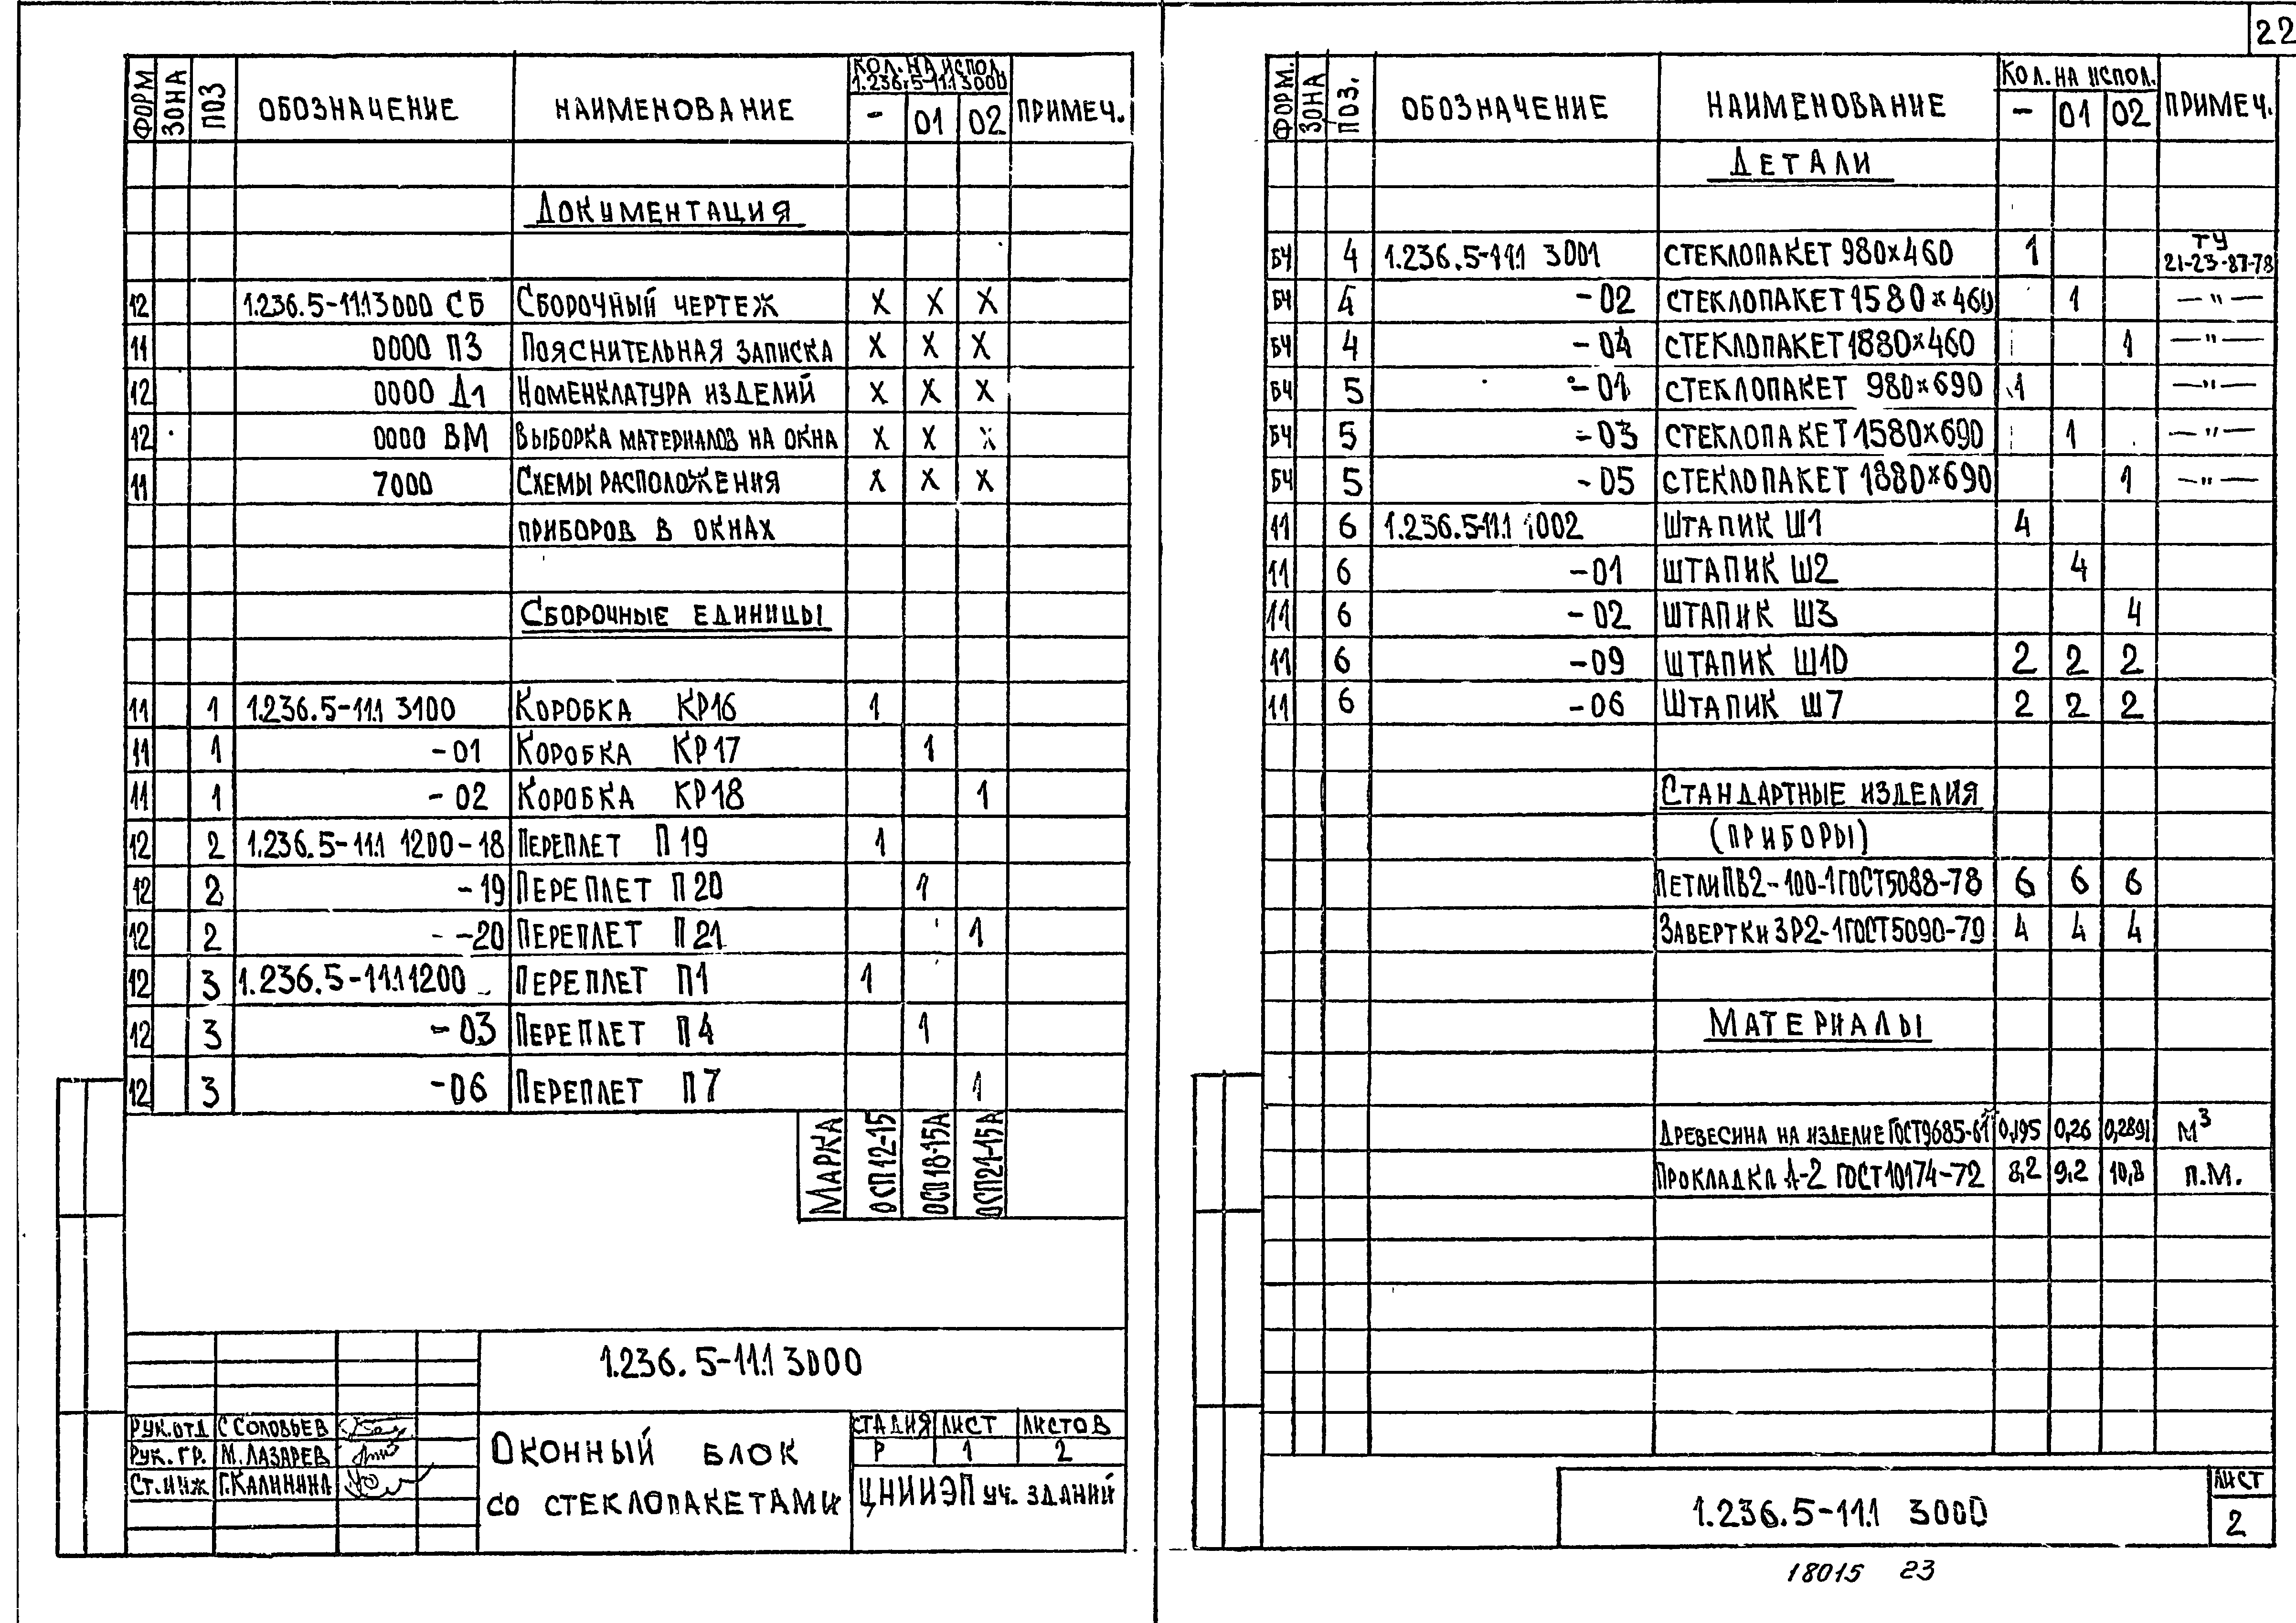 22
ФОРМ ЗОНА ПОЗ ОБОЗНАЧЕНИЕ НАИМЕНОВАНИЕ КОЛ. НА ИСПОЛ. 1.236.5-11.1 3000 - 01 02 ПРИМЕЧ.
ДОКУМЕНТАЦИЯ
12 1.236.5-11.1 3000 СБ СБОРОЧНЫЙ ЧЕРТЕЖ X X X
11 0000 ПЗ ПОЯСНИТЕЛЬНАЯ ЗАПИСКА X X X
12 0000 Д1 НОМЕНКЛАТУРА ИЗДЕЛИЙ X X X
12 0000 ВМ ВЫБОРКА МАТЕРИАЛОВ НА ОКНА X X X
11 7000 СХЕМЫ РАСПОЛОЖЕНИЯ X X X
ПРИБОРОВ В ОКНАХ
СБОРОЧНЫЕ ЕДИНИЦЫ
11 1 1.236.5-11.1 3100 КОРОБКА КР16 1
11 1 -01 КОРОБКА КР17 1
11 1 -02 КОРОБКА КР18 1
12 2 1.236.5-11.1 1200-18 ПЕРЕПЛЕТ П19 1
12 2 -19 ПЕРЕПЛЕТ П20 1
12 2 -20 ПЕРЕПЛЕТ П21 1
12 3 1.236.5-11.1 1200 ПЕРЕПЛЕТ П1 1
12 3 -03 ПЕРЕПЛЕТ П4 1
12 3 -06 ПЕРЕПЛЕТ П7 1
МАРКА ОСП12-15 ОСП18-15А ОСП21-15А
1.236.5-11.1 3000
РУК.ОТД С СОЛОВЬЕВ
РУК. ГР. М. ЛАЗАРЕВ
СТ.ИНЖ Г.КАЛИНИНА
ОКОННЫЙ БЛОК
СО СТЕКЛОПАКЕТАМИ
СТАДИЯ ЛИСТ ЛИСТОВ
Р 1 2
ЦНИИЭП УЧ. ЗДАНИЙ
ФОРМ. ЗОНА ПОЗ. ОБОЗНАЧЕНИЕ НАИМЕНОВАНИЕ КОЛ. НА ИСПОЛ. - 01 02 ПРИМЕЧ.
ДЕТАЛИ
БЧ 4 1.236.5-11.1 3001 СТЕКЛОПАКЕТ 980х460 1 ТУ 21-23-87-78
БЧ 4 -02 СТЕКЛОПАКЕТ 1580х460 1 —"—
БЧ 4 -04 СТЕКЛОПАКЕТ 1880х460 1 —"—
БЧ 5 -01 СТЕКЛОПАКЕТ 980х690 1 —"—
БЧ 5 -03 СТЕКЛОПАКЕТ 1580х690 1 —"—
БЧ 5 -05 СТЕКЛОПАКЕТ 1880х690 1 —"—
11 6 1.236.5-11.1 1002 ШТАПИК Ш1 4
11 6 -01 ШТАПИК Ш2 4
11 6 -02 ШТАПИК Ш3 4
11 6 -09 ШТАПИК Ш10 2 2 2
11 6 -06 ШТАПИК Ш7 2 2 2
СТАНДАРТНЫЕ ИЗДЕЛИЯ
(ПРИБОРЫ)
ПЕТЛИ ПВ2-100-1 ГОСТ5088-78 6 6 6
ЗАВЕРТКИ ЗР2-1 ГОСТ5090-79 4 4 4
МАТЕРИАЛЫ
ДРЕВЕСИНА НА ИЗДЕЛИЕ ГОСТ9685-61 0,195 0,26 0,2891 М³
ПРОКЛАДКА А-2 ГОСТ10174-72 8,2 9,2 10,8 П.М.
1.236.5-11.1 3000
ЛИСТ
2
18015 23